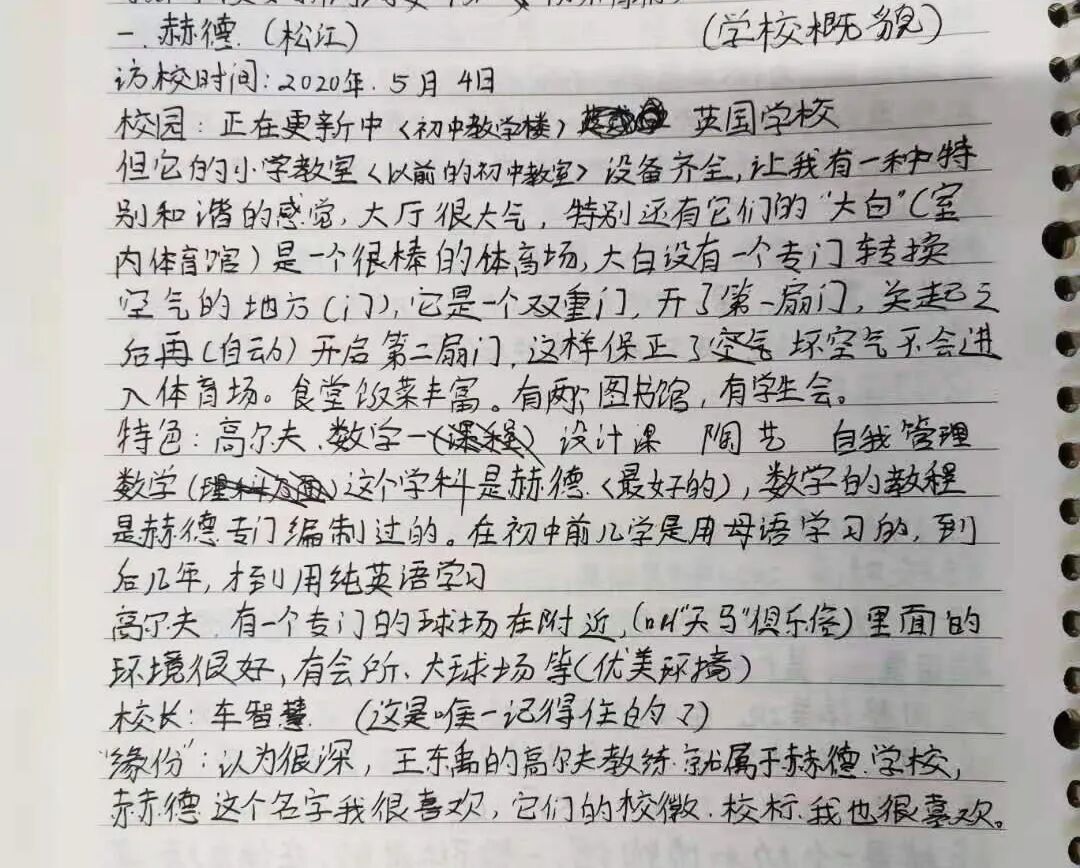 一.赫德.(松江) (学校概貌)
访校时间:2020年.5月4日
校园:正在更新中〈初中教学楼〉 英国学校
但它的小学教室〈以前的初中教室〉设备齐全,让我有一种特
别和谐的感觉,大厅很大气,特别还有它们的“大白”(室
内体育馆)是一个很棒的体育场,大白设有一个专门转换
空气的地方(门),它是一个双重门,开了第一扇门,关起之
后再(自动)开启第二扇门,这样保证了空气坏空气不会进
入体育场。食堂饭菜丰富。有两个图书馆,有学生会。
特色:高尔夫、数学一(课程)设计课 陶艺 自我管理
数学(理科方面)这个学科是赫德〈最好的〉,数学的教程
是赫德专门编制过的。在初中前几学是用母语学习的,到
后几年,才到用纯英语学习
高尔夫.有一个专门的球场在附近,(叫“天马”俱乐部)里面的
环境很好,有会所、大球场等(优美环境)
校长:车智慧.(这是唯一记得住的了)
“缘份”:认为很深,王东禹的高尔夫教练就属于赫德学校,
赫德这个名字我很喜欢,它们的校徽.校标.我也很喜欢。